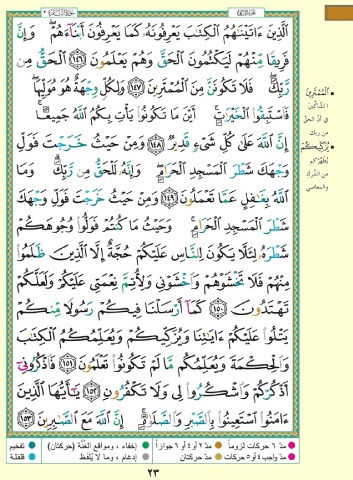 ٱلَّذِينَ ءَاتَيْنَٰهُمُ ٱلْكِتَٰبَ يَعْرِفُونَهُۥ كَمَا يَعْرِفُونَ أَبْنَآءَهُمْ ۖ وَإِنَّ
فَرِيقًا مِّنْهُمْ لَيَكْتُمُونَ ٱلْحَقَّ وَهُمْ يَعْلَمُونَ ﴿١٤٦﴾ ٱلْحَقُّ مِن
رَّبِّكَ ۖ فَلَا تَكُونَنَّ مِنَ ٱلْمُمْتَرِينَ ﴿١٤٧﴾ وَلِكُلٍّ وِجْهَةٌ هُوَ مُوَلِّيهَا ۖ
فَٱسْتَبِقُوا۟ ٱلْخَيْرَٰتِ ۚ أَيْنَ مَا تَكُونُوا۟ يَأْتِ بِكُمُ ٱللَّهُ جَمِيعًا ۚ
إِنَّ ٱللَّهَ عَلَىٰ كُلِّ شَىْءٍ قَدِيرٌ ﴿١٤٨﴾ وَمِنْ حَيْثُ خَرَجْتَ فَوَلِّ
وَجْهَكَ شَطْرَ ٱلْمَسْجِدِ ٱلْحَرَامِ ۖ وَإِنَّهُۥ لَلْحَقُّ مِن رَّبِّكَ ۗ وَمَا
ٱللَّهُ بِغَٰفِلٍ عَمَّا تَعْمَلُونَ ﴿١٤٩﴾ وَمِنْ حَيْثُ خَرَجْتَ فَوَلِّ وَجْهَكَ
شَطْرَ ٱلْمَسْجِدِ ٱلْحَرَامِ ۚ وَحَيْثُ مَا كُنتُمْ فَوَلُّوا۟ وُجُوهَكُمْ
شَطْرَهُۥ لِئَلَّا يَكُونَ لِلنَّاسِ عَلَيْكُمْ حُجَّةٌ إِلَّا ٱلَّذِينَ ظَلَمُوا۟
مِنْهُمْ فَلَا تَخْشَوْهُمْ وَٱخْشَوْنِى وَلِأُتِمَّ نِعْمَتِى عَلَيْكُمْ وَلَعَلَّكُمْ
تَهْتَدُونَ ﴿١٥٠﴾ كَمَآ أَرْسَلْنَا فِيكُمْ رَسُولًا مِّنكُمْ
يَتْلُوا۟ عَلَيْكُمْ ءَايَٰتِنَا وَيُزَكِّيكُمْ وَيُعَلِّمُكُمُ ٱلْكِتَٰبَ
وَٱلْحِكْمَةَ وَيُعَلِّمُكُم مَّا لَمْ تَكُونُوا۟ تَعْلَمُونَ ﴿١٥١﴾ فَٱذْكُرُونِىٓ
أَذْكُرْكُمْ وَٱشْكُرُوا۟ لِى وَلَا تَكْفُرُونِ ﴿١٥٢﴾ يَٰٓأَيُّهَا ٱلَّذِينَ
ءَامَنُوا۟ ٱسْتَعِينُوا۟ بِٱلصَّبْرِ وَٱلصَّلَوٰةِ ۚ إِنَّ ٱللَّهَ مَعَ ٱلصَّٰبِرِينَ ﴿١٥٣﴾
الْمُمْتَرِينَ
الشَّاكِّين
في أنّ الحقّ
من ربك
يُزَكِّيكُمْ
يُطَهِّرُكم
من الشّرك
والمعاصي
مدّ ٦ حركات لزوماً مدّ ٢ أو ٤ أو ٦ جوازاً إخفاء، ومواقع الغُنَّة (حركتان) تفخيم
مدّ واجب ٤ أو ٥ حركات مدّ حركتان إدغام، وما لا يُلفظ قلقلة
٢٣